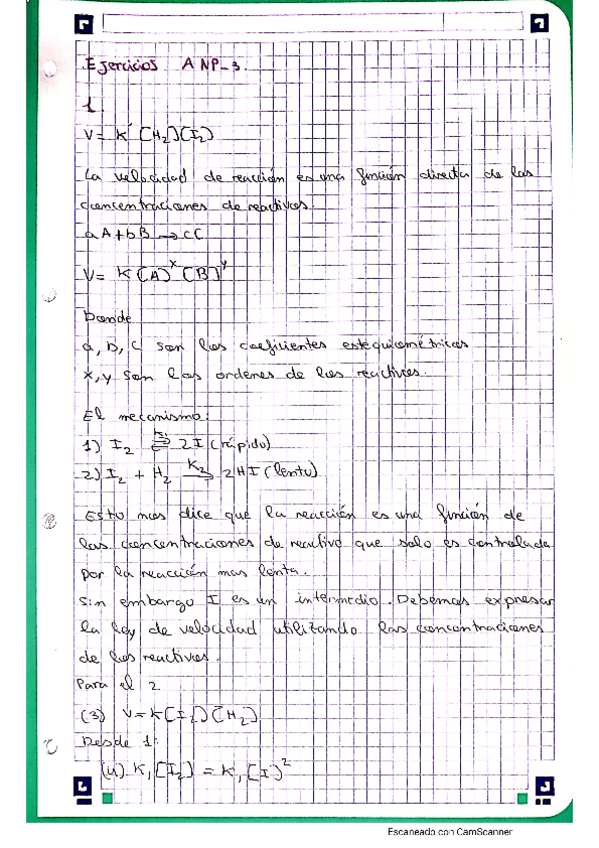 Ejercicios ANP-3.
1.
V= K' [H2][I2]
La velocidad de reacción es una función directa de las
concentraciones de reactivos.
aA+bB → cC
V= K[A]^x [B]^y
Donde
a, b, c son los coeficientes estequiométricos
x, y son los ordenes de los reactivos.
El mecanismo:
1) I2 ⇌ 2I (rápido)
2) I2 + H2 →K2 2HI (lento)
Esto nos dice que la reacción es una función de
las concentraciones de reactivo que solo es controlada
por la reacción mas lenta.
Sin embargo I es un intermedio. Debemos expresar
la ley de velocidad utilizando las concentraciones
de los reactivos.
Para el 2
(3) V=K[I2][H2]
Desde 1:
(4) K1[I2] = K1[I]^2
Escaneado con CamScanner